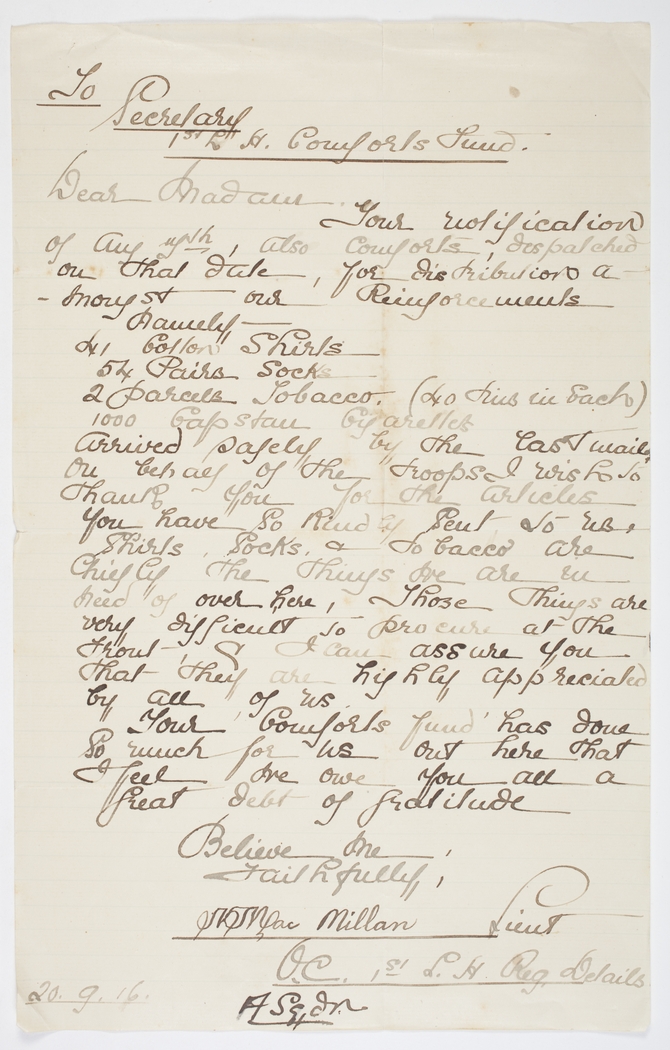 To
Secretary
1st L. H. Comforts Fund.
Dear Madam.
Your notification
of Aug , also comforts, despatched
on that date, for distribution a
- mongst our Reinforcements
Namely
41 Cotton Shirts
54 Pairs Socks
2 parcels Tobacco. (40 tins in Each)
1000 Capstan Cigarettes
arrived safely by the last mail.
On behalf of the troops I wish to
thank you for the articles
you have so kindly sent to us,
Shirts, Socks, & Tobacco are
chiefly the things we are in
need of over here, Those Things are
very difficult to procure at the
Front & I can assure you
that they are highly appreciated
by all of us
Your 'Comforts fund' has done
so much for us out here that
I feel we owe you all a
great debt of gratitude
Believe me,
Faithfully,
Mac Millan Lieut
O.C. 1st L. H. Reg. Details
20. 9. 16. A Sqdn